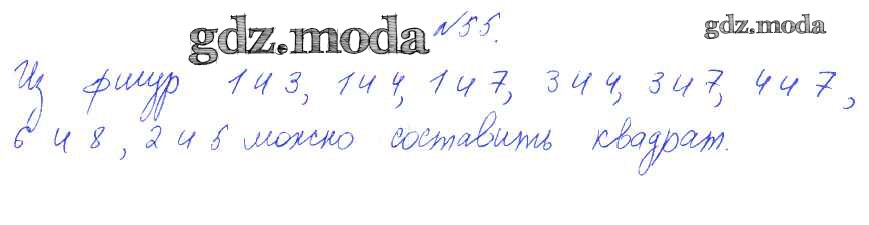 gdz.moda №55. gdz.moda
Из фигур 1 и 3, 1 и 4, 1 и 7, 3 и 4, 3 и 7, 4 и 7,
6 и 8, 2 и 5 можно составить квадрат.